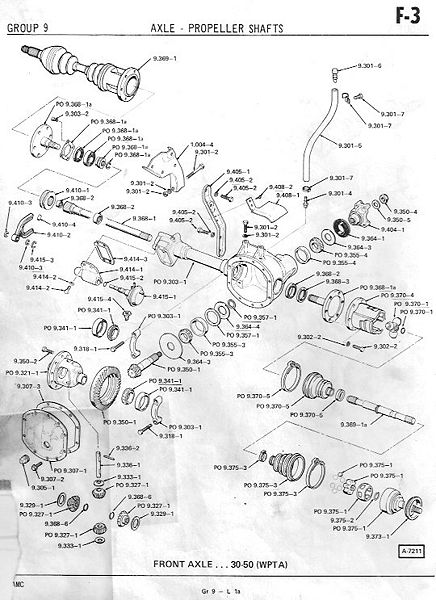 GROUP 9
AXLE - PROPELLER SHAFTS
F-3
9.369-1
9.301-6
PO 9.368-1a
9.303-2
PO 9.368-1a
PO 9.368-1a
PO 9.368-1a
1.004-4
9.301-2
9.301-7
9.301-7
9.301-5
9.405-1
9.405-2
9.408-2
9.408-1
9.301-7
9.301-4
9.301-2
9.301-2
9.410-1
9.368-2
9.368-2
9.368-1
9.405-2
9.405-2
9.301-1
9.301-2
9.350-4
9.350-5
9.404-1
9.364-1
PO 9.355-4
PO 9.355-4
9.364-4
9.410-3
9.410-4
9.410-2
9.415-3
9.410-3
9.414-2
9.414-2
9.414-1
9.414-1
9.415-2
9.415-4
9.415-1
PO 9.303-1
9.368-2
9.368-3
PO 9.368-1a
PO 9.370-4
PO 9.370-1
PO 9.341-1
PO 9.341-1
PO 9.303-1
PO 9.357-1
9.364-4
PO 9.357-1
PO 9.355-3
PO 9.355-3
9.364-4
PO 9.350-1
9.318-1
9.302-2
9.302-2
9.350-2
PO 9.321-1
9.307-3
PO 9.341-1
PO 9.341-1
PO 9.350-1
PO 9.303-1
9.318-1
PO 9.370-5
PO 9.370-5
PO 9.370-5
9.369-1a
9.336-2
9.336-1
PO 9.307-1
9.307-2
9.305-1
PO 9.327-1
9.333-1
9.329-1
PO 9.327-1
9.368-6
9.368-6
PO 9.327-1
9.329-1
PO 9.327-1
9.333-1
PO 9.375-3
PO 9.375-3
PO 9.375-3
PO 9.375-1
PO 9.375-1
PO 9.375-1
PO 9.375-2
PO 9.375-1
9.373-1
A-7211
FRONT AXLE . . . 30-50 (WPTA)
AMC
Gr 9 - L 1a